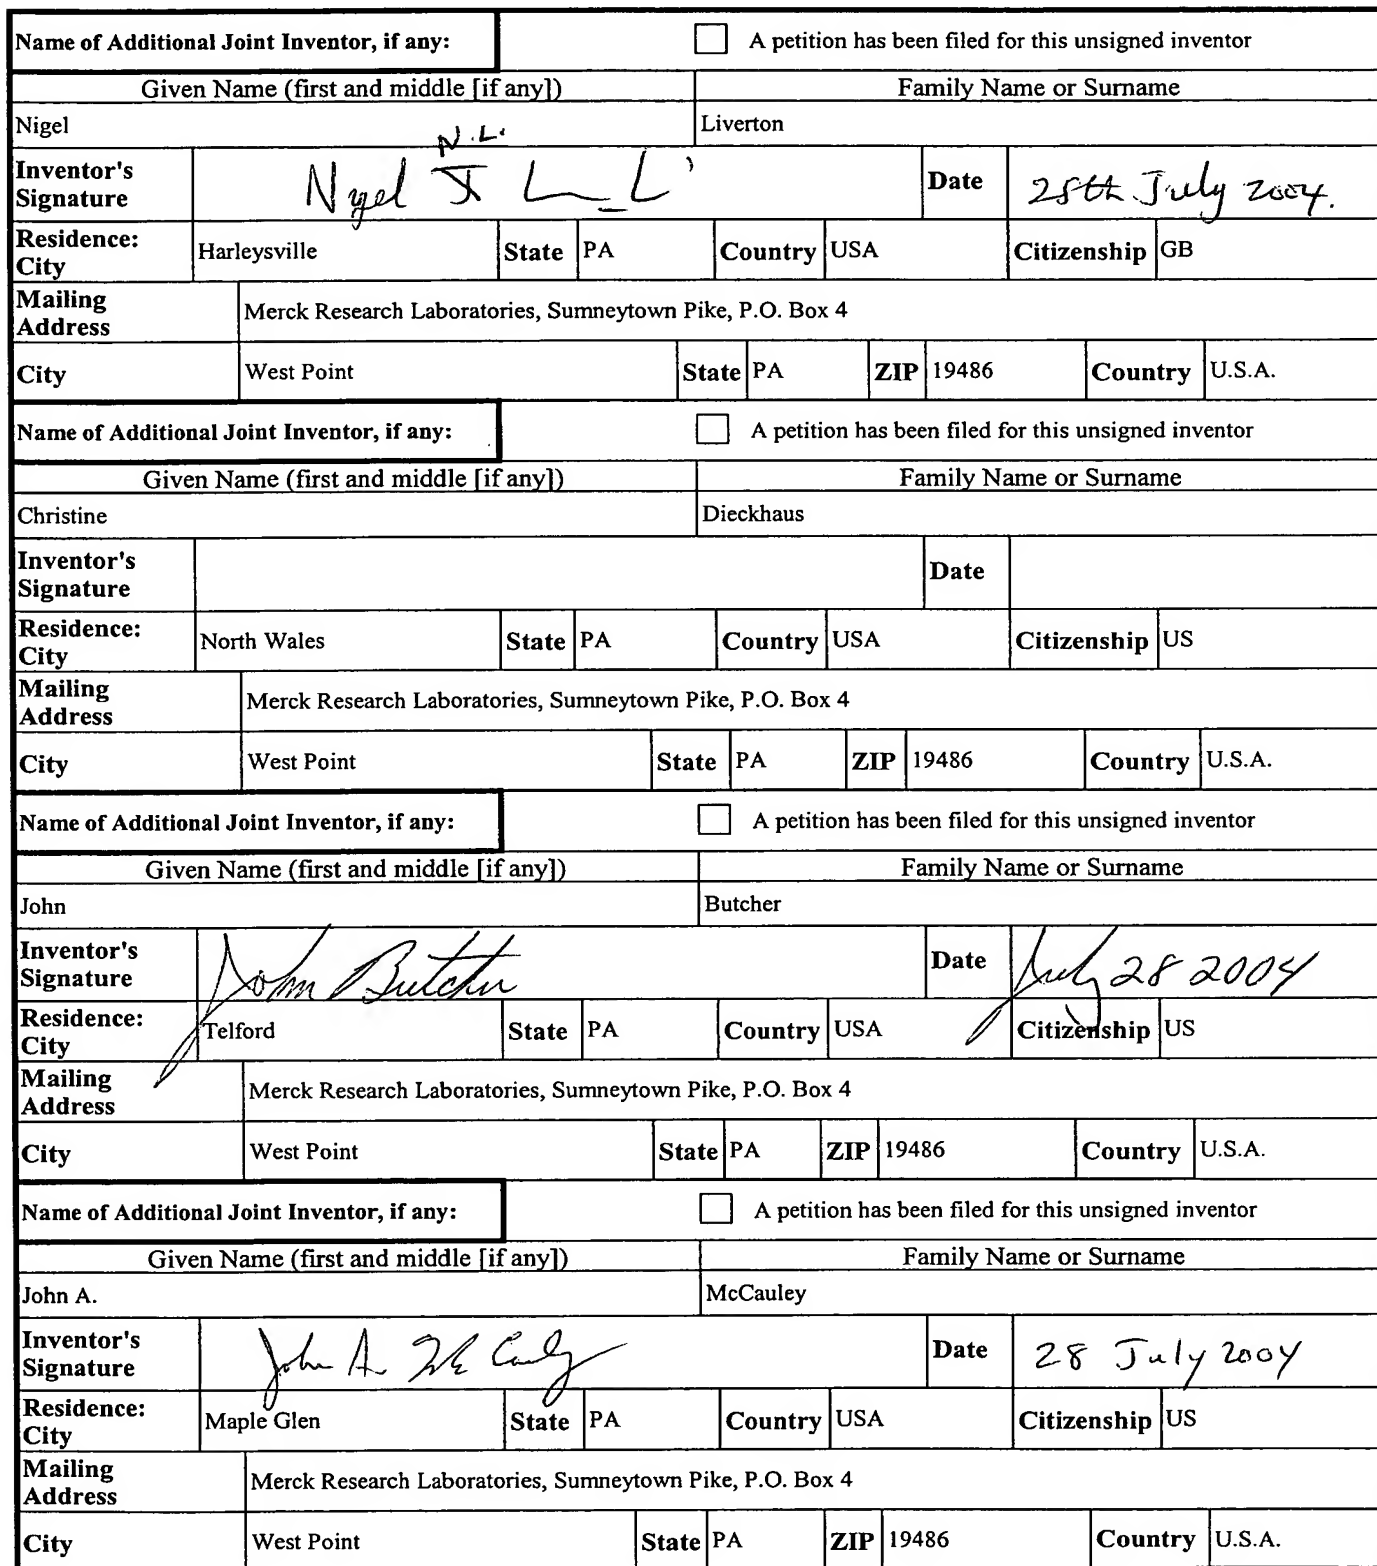 Name of Additional Joint Inventor, if any: A petition has been filed for this unsigned inventor
Given Name (first and middle [if any]) Family Name or Surname
Nigel Liverton
N.L.
Inventor's Signature Nigel Date July 2004.
Residence: City Harleysville State PA Country USA Citizenship GB
Mailing Address Merck Research Laboratories, Sumneytown Pike, P.O. Box 4
City West Point State PA ZIP 19486 Country U.S.A.
Name of Additional Joint Inventor, if any: A petition has been filed for this unsigned inventor
Given Name (first and middle [if any]) Family Name or Surname
Christine Dieckhaus
Inventor's Signature Date
Residence: City North Wales State PA Country USA Citizenship US
Mailing Address Merck Research Laboratories, Sumneytown Pike, P.O. Box 4
City West Point State PA ZIP 19486 Country U.S.A.
Name of Additional Joint Inventor, if any: A petition has been filed for this unsigned inventor
Given Name (first and middle [if any]) Family Name or Surname
John Butcher
Inventor's Signature John Butcher Date July 28 2004
Residence: City Telford State PA Country USA Citizenship US
Mailing Address Merck Research Laboratories, Sumneytown Pike, P.O. Box 4
City West Point State PA ZIP 19486 Country U.S.A.
Name of Additional Joint Inventor, if any: A petition has been filed for this unsigned inventor
Given Name (first and middle [if any]) Family Name or Surname
John A. McCauley
Inventor's Signature John A. McCauley Date 28 July 2004
Residence: City Maple Glen State PA Country USA Citizenship US
Mailing Address Merck Research Laboratories, Sumneytown Pike, P.O. Box 4
City West Point State PA ZIP 19486 Country U.S.A.